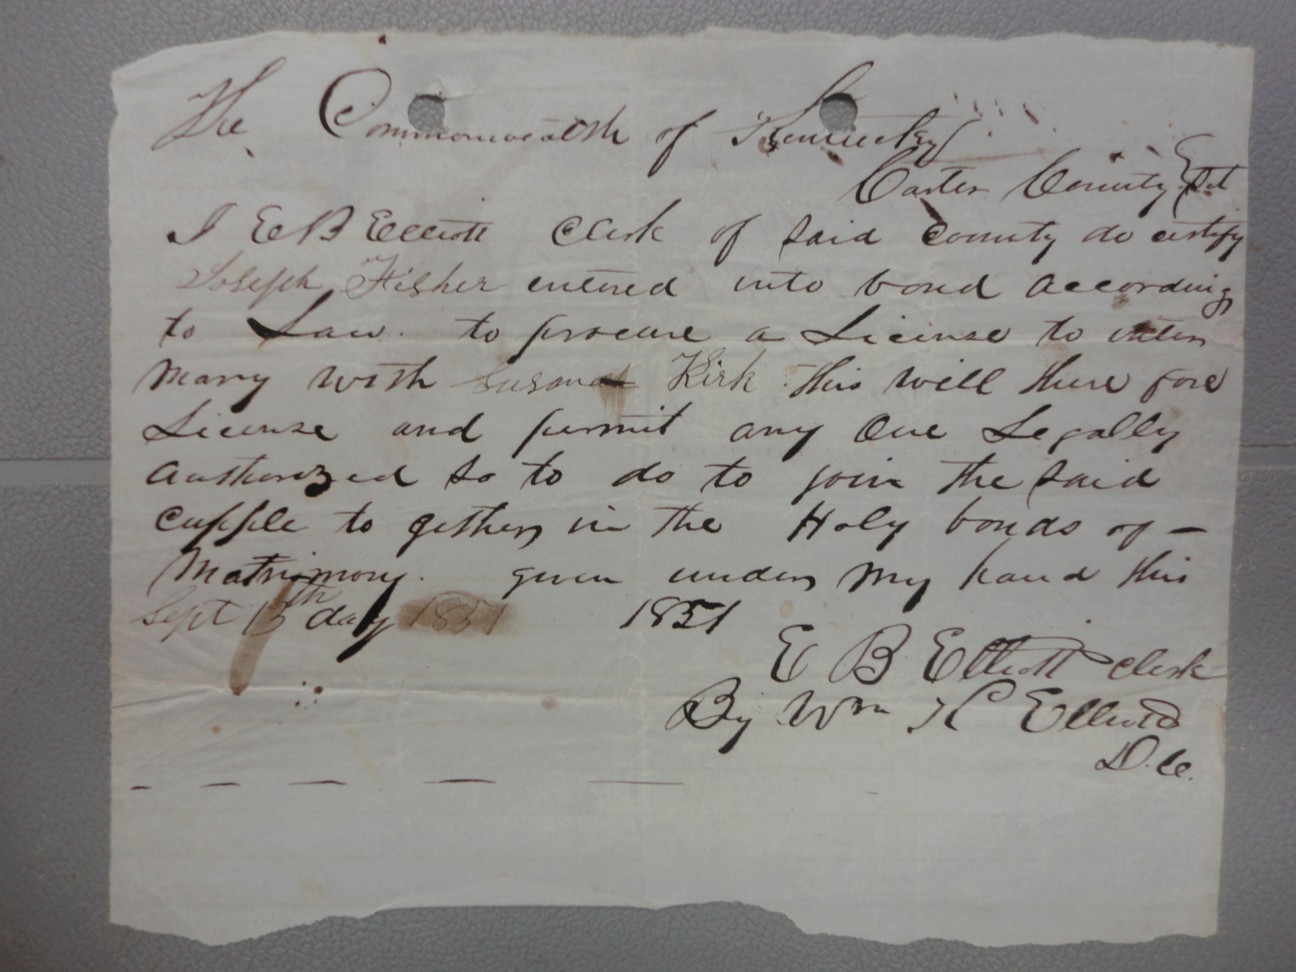 The Commonwealth of Kentucky
Carter County Sct
I E B Elliott Clerk of said County do certify
Joseph Fisher entered into bond according
to Law. to procure a License to inter
marry with Susana Kirk this will there fore
License and permit any One Legally
authorized so to do to join the said
cupple to gether in the Holy bonds of -
Matrimony. given under my hand this
Sept 13th day 1851 1851
E B Elliott clerk
By Wm K Elliott
D.C.